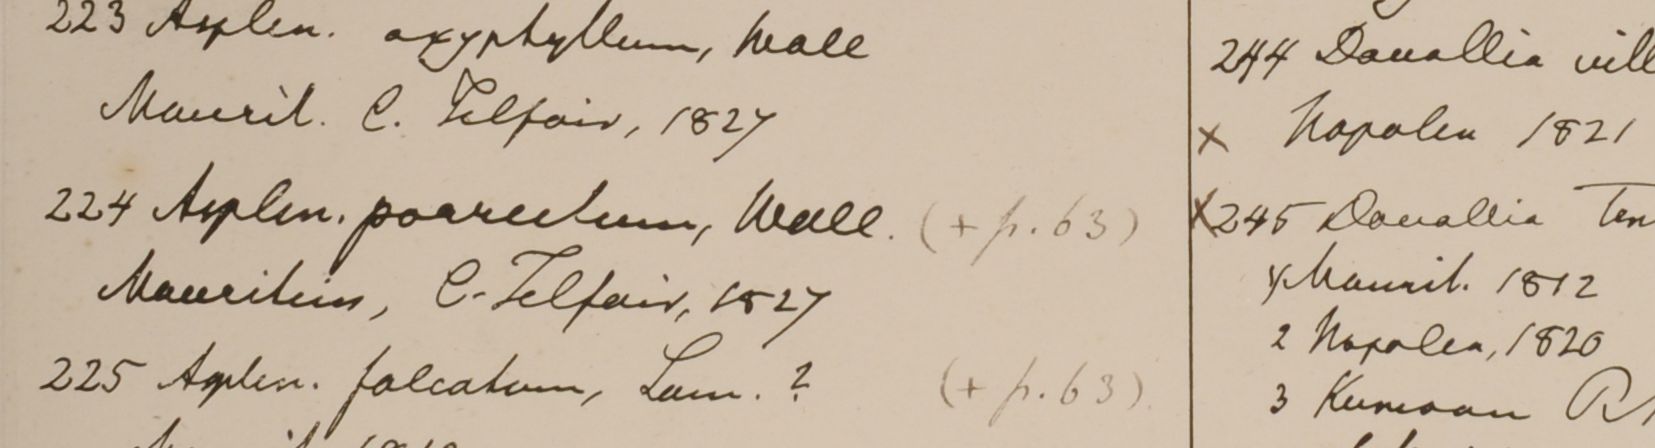 223 Asplen. oxyphyllum, Wall
Maurit. C. Telfair, 1827
224 Asplen. porrectum, Wall. (+ p. 63)
Mauritius, C. Telfair, 1827
225 Asplen. falcatum, Lam. ? (+ p. 63)
244 Davallia vill
x Napalea 1821
x 245 Davallia Ten
Maurit. 1812
2 Napalea, 1820
3 Kumaon R